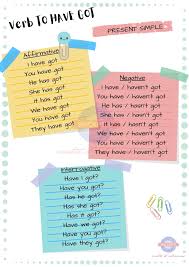 Verb To HAVE GOT
PRESENT SIMPLE
Affirmative
I have got
You have got
He has got
She has got
It has got
We have got
You have got
They have got
Negative
I have / haven't got
You have / haven't got
He has / hasn't got
She has / hasn't got
It has / hasn't got
We have / haven't got
You have / haven't got
They have / haven't got
Interrogative
Have I got?
Have you got?
Has he got?
Has she got?
Has it got?
Have we got?
Have you got?
Have they got?